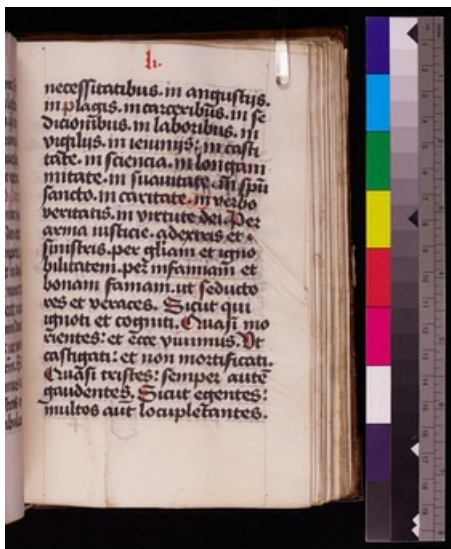 h.
necessitatibus. in angustijs.
in plagis. in carceribūs. in se
dicionibus. in laboribus. in
vigilijs. in ieiunijs: in casti
tate. in sciencia. in longani
mitate. in suauitate. in spū
sancto. in caritate. in verbo
veritatis. in virtute dei. Per
arma iusticie. adextris et
sinistris. per gl̄iam et igno
bilitatem. per infamiam et
bonam famam. ut seducto
res et veraces. Sicut qui
ignoti et cogniti. Quasi mo
rientes: et ecce viuimus. Vt
castigati: et non mortificati.
Quasi tristes: semper autē
gaudentes. Sicut egentes:
multos aut locupletantes.